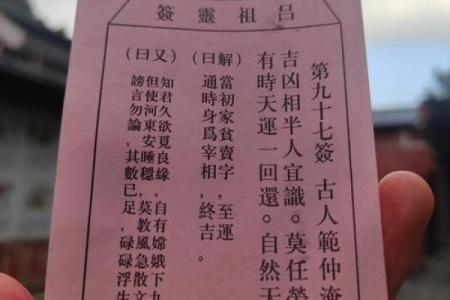 呂祖靈簽
第九十七簽 古人範仲淹
吉凶相半人宜識。莫任勞
有時天運一回還。自然天
(解曰)
當初家貧賣字,至運
通時身爲宰相,終吉。
(又曰)
知君久欲覓良緣,自有嫦娥下九
但使河東安睡穩,莫教風急散文
謗言勿論,其數巳足,碌碌浮生